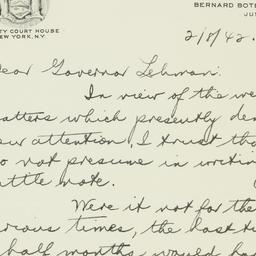 BERNARD BOTE
JUS
TY COURT HOUSE
EW YORK, N.Y.
2/5/42.
ear Governor Lehman:
In view of the we
atters which presently de
our attention, I trust tha
o not presume in writin
ittle note.
Were it not for the
rious times, the last t
half months would ha